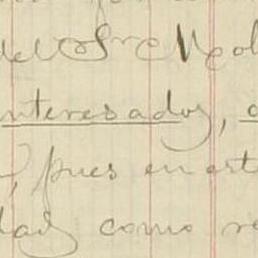 del Sr Col
interesados,
, pues en est
dad como re